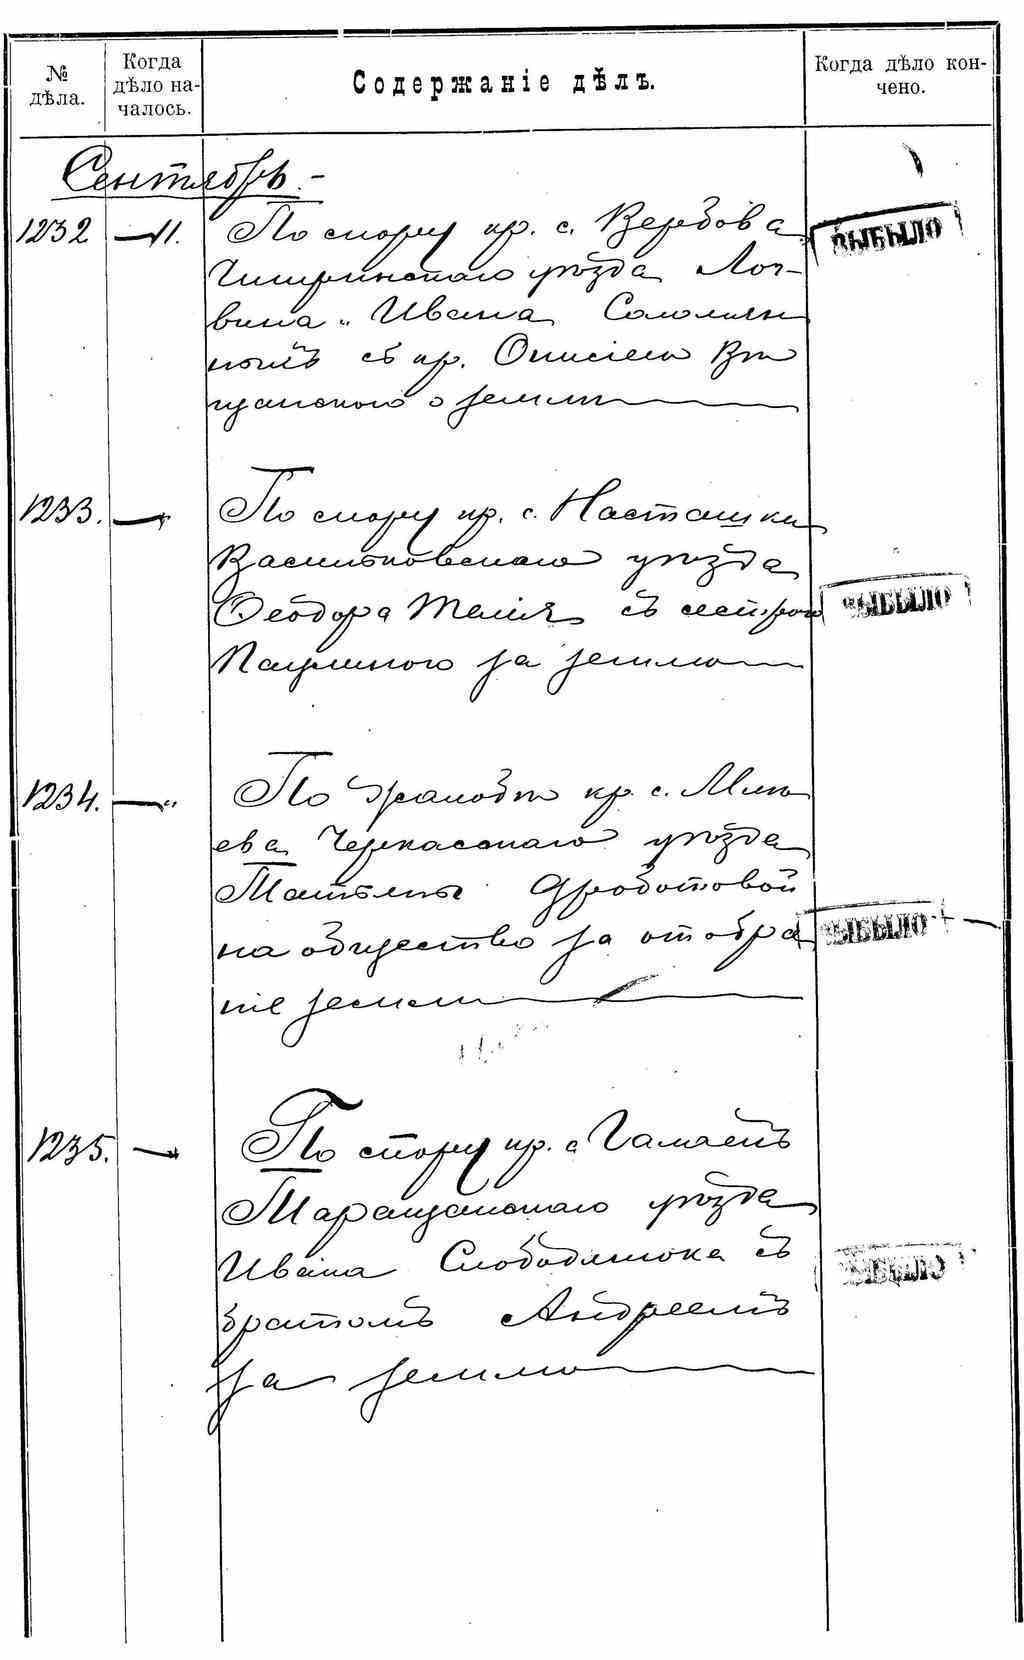 № дѣла.
Когда дѣло на-
чалось.
Содержаніе дѣлъ.
Когда дѣло кон-
чено.
Сентябрь.-
1232 — 11. По спору кр. с. Вербова ВЫБЫЛО
Чигиринскаго уѣзда Лог-
вина и Ивана Соломян
ныхъ съ кр.
о земли
1233. — " По спору кр. с. Насташки
Васильковскаго уѣзда
Ѳеодора Телія съ сестрою ВЫБЫЛО
за землю
1234. — " По жалобѣ кр. с. Млѣ
ева Черкасскаго уѣзда
Татьяны Дроботовой
на общество за отобра ВЫБЫЛО
ніе земли
1235. — " По спору кр. с. Гамаекъ
Таращанскаго уѣзда
Ивана Слободянюка съ
братомъ Андреемъ
за землю